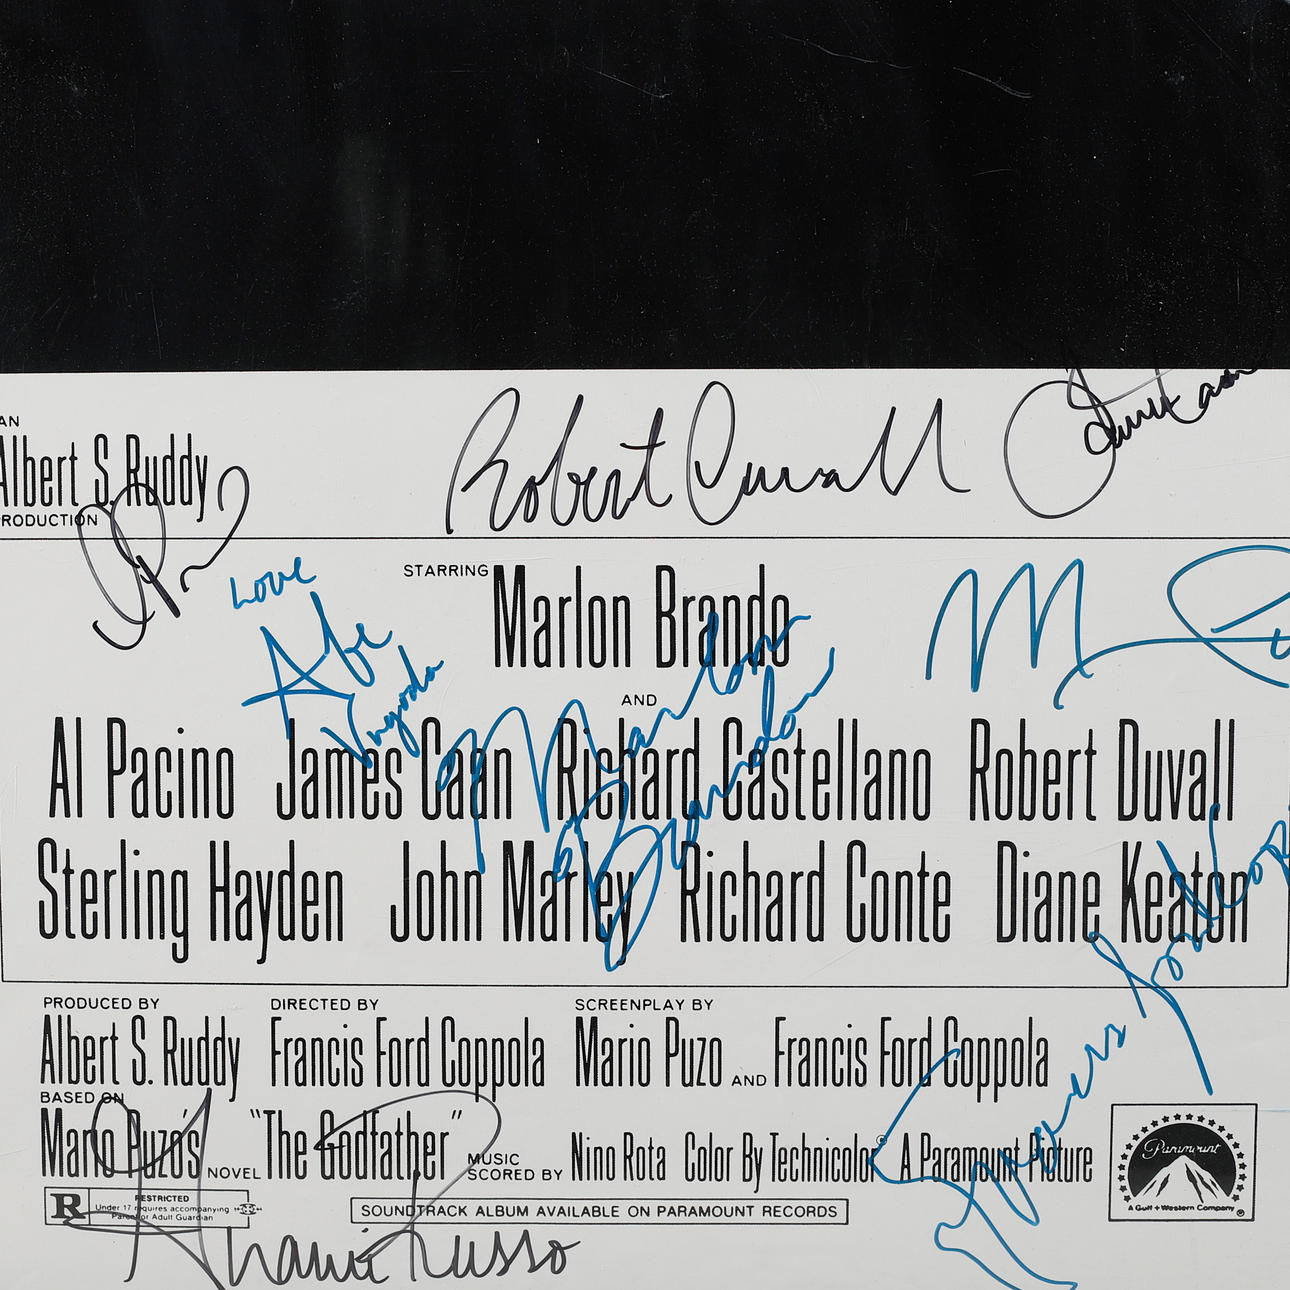 AN
Albert S. Ruddy
PRODUCTION
Robert Duvall
James Caan
Love
Abe
Vigoda
STARRING Marlon Brando
AND
Marlon
Brando
Al Pacino James Caan Richard Castellano Robert Duvall
Sterling Hayden John Marley Richard Conte Diane Keaton
PRODUCED BY DIRECTED BY SCREENPLAY BY
Albert S. Ruddy Francis Ford Coppola Mario Puzo AND Francis Ford Coppola
BASED ON
Mario Puzo's NOVEL "The Godfather" MUSIC SCORED BY Nino Rota Color By Technicolor® A Paramount Picture
Paramount
A Gulf + Western Company ®
R RESTRICTED
Under 17 requires accompanying
Parent or Adult Guardian
SOUNDTRACK ALBUM AVAILABLE ON PARAMOUNT RECORDS
Gianni Russo